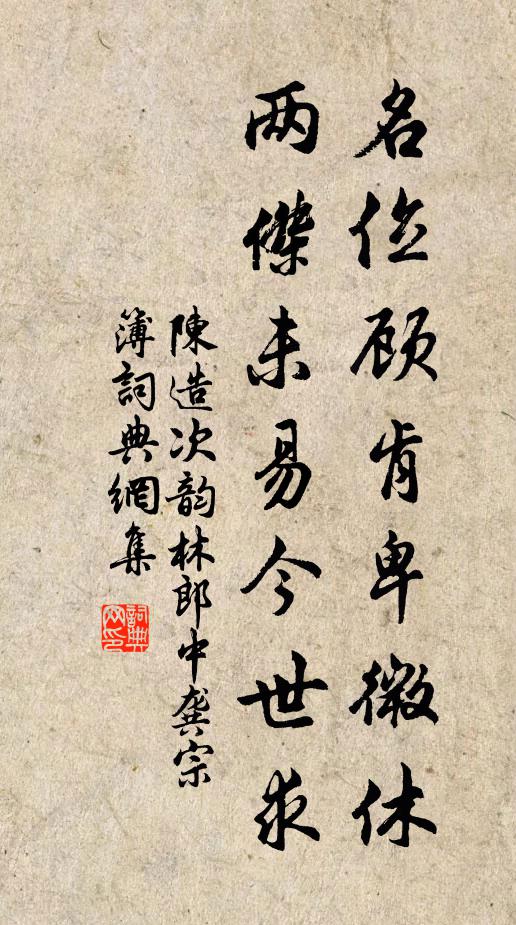 名位顾肯卑微休
两傑未易今世求
陳造次韵林郎中龚宗
簿詞典網集
詞典
网印